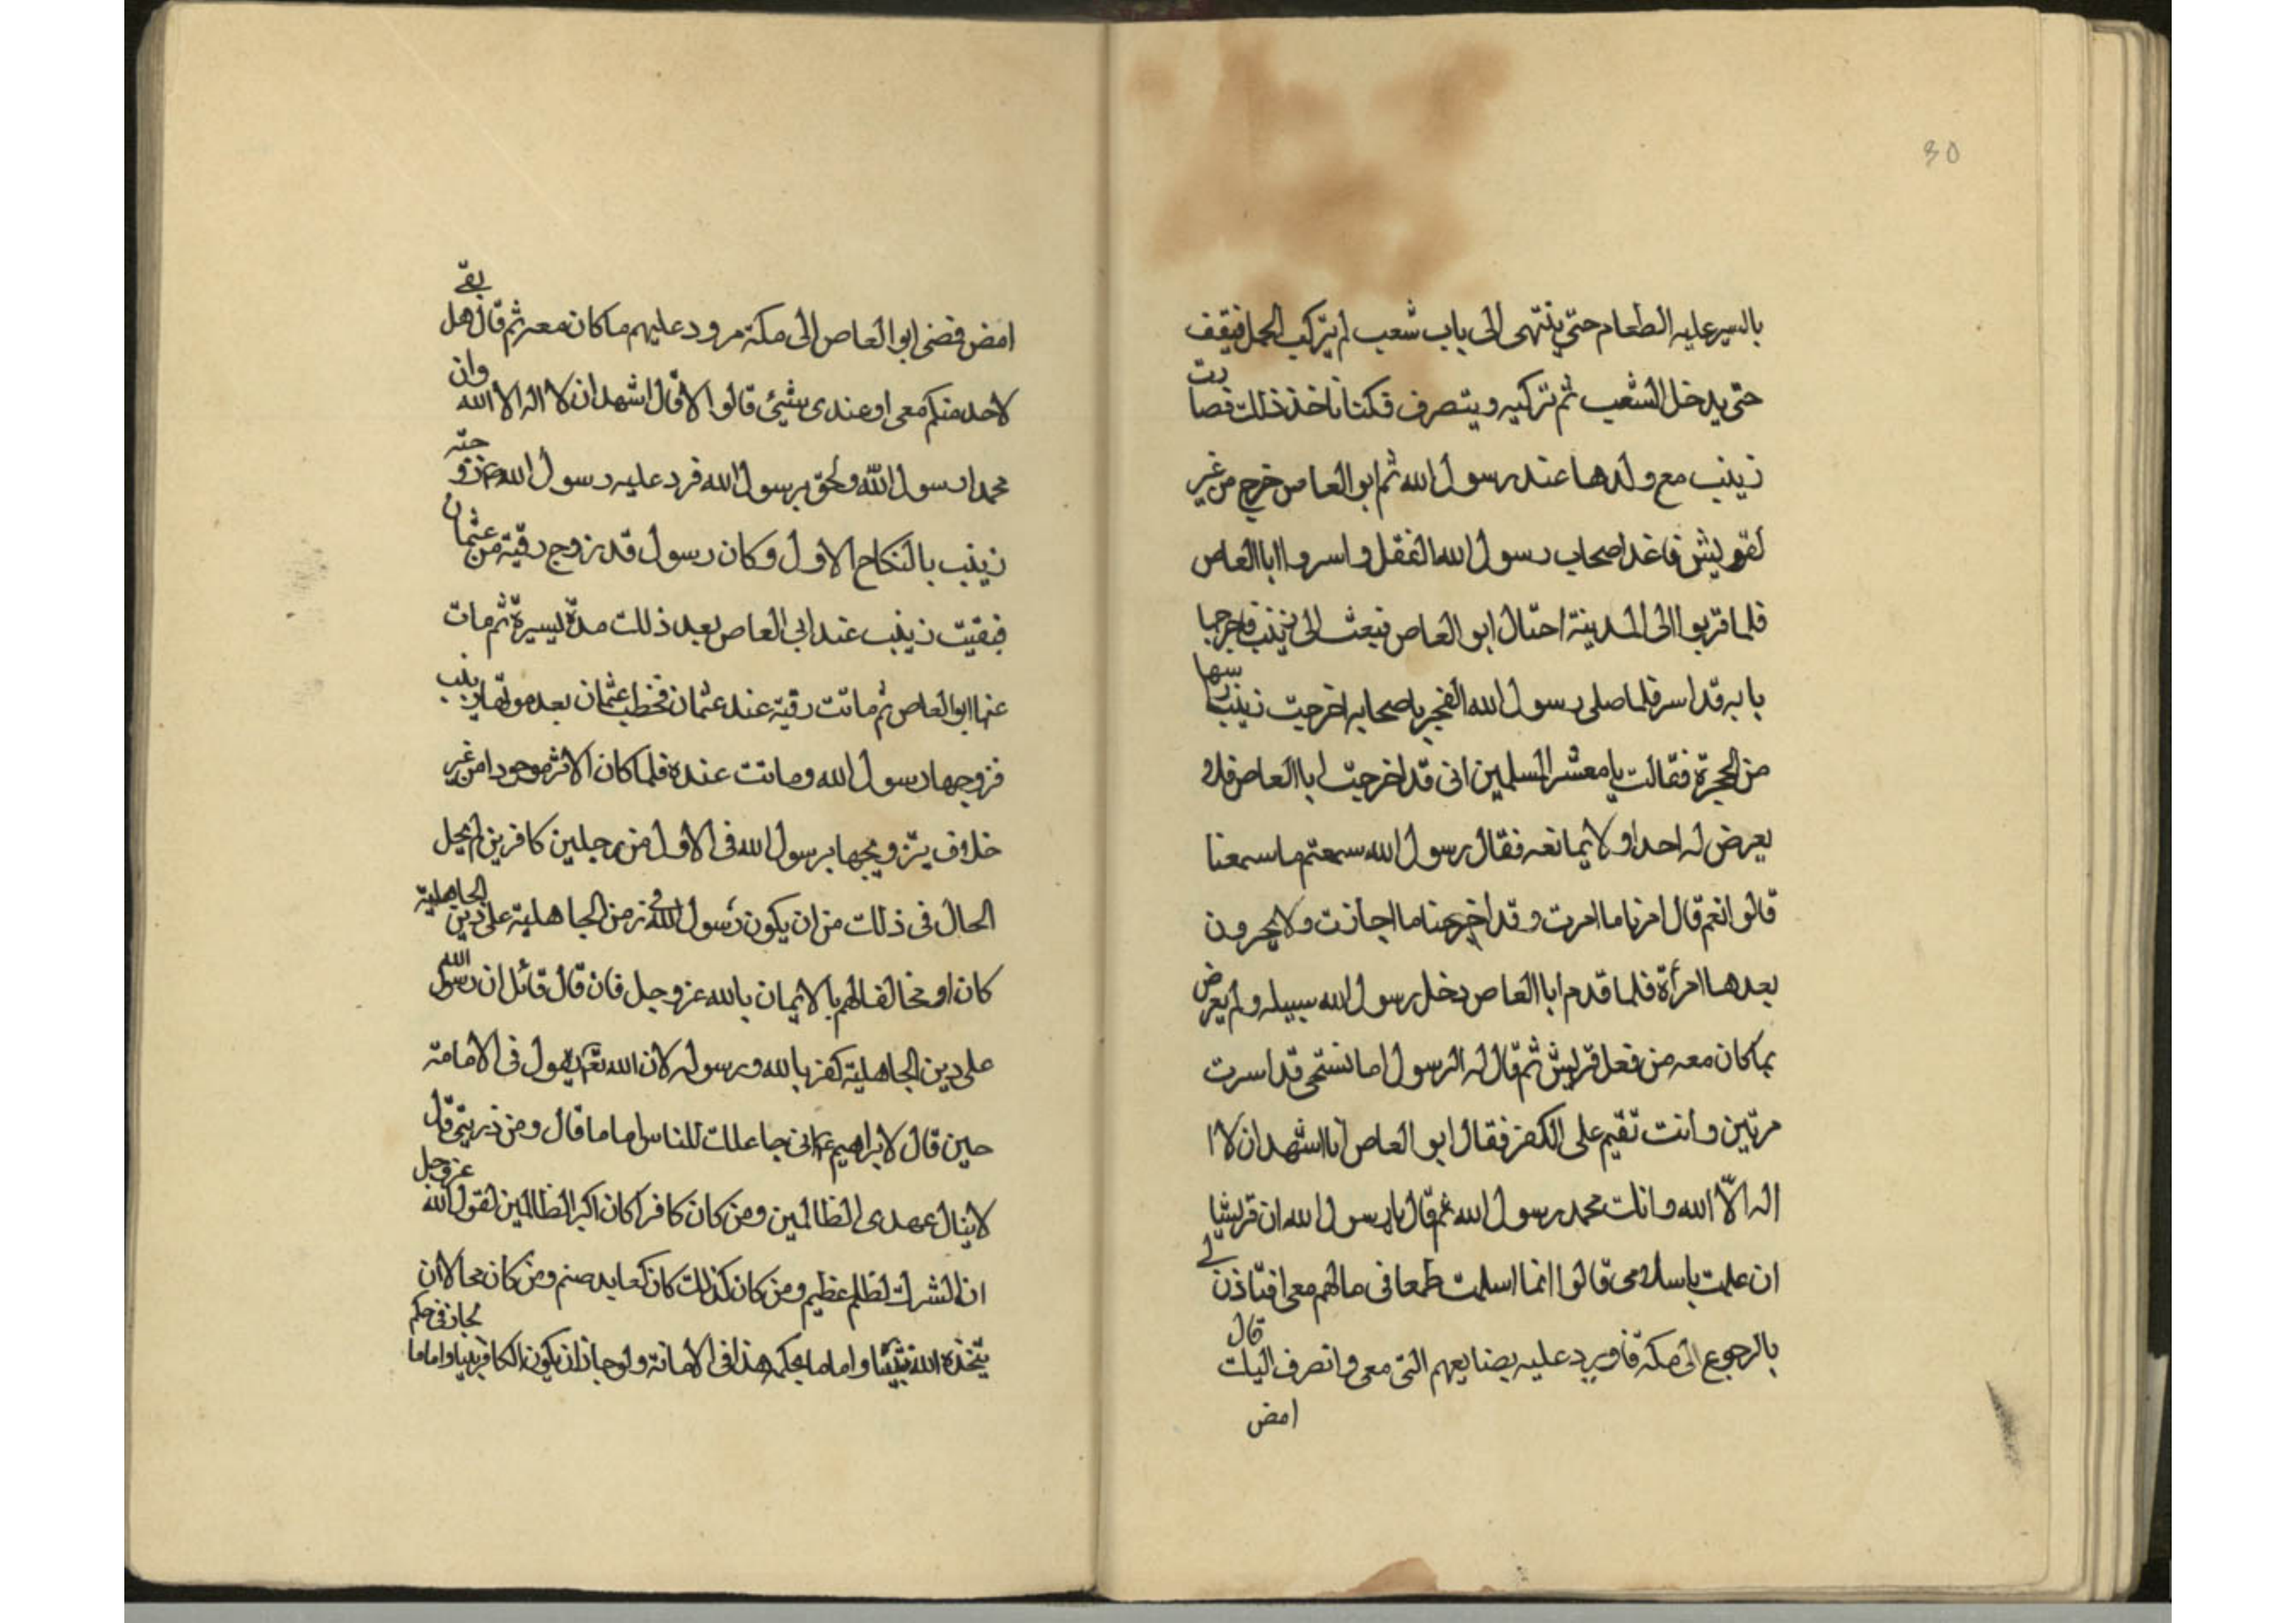 30
بالسير عليه الطعام حتى ينتهى الى باب شعب لم يتركب الجمل فيقف
حتى يدخل الشعب ثم تركبه ويتصرف فكنا ناخذ ذلك فصارت
زينب مع ولدها عند رسول الله ثم ابو العاص خرج من غير
لقريش فاغدا صحاب رسول الله العقل واسروا ابا العاص
فلما قربوا الى المدينة احتال ابو العاص فبعث الى زينب فاخرجها
بابه قد اسر فلما صلى رسول الله الفجر باصحابه اخرجت زينب راسها
من الحجرة فقالت يا معشر المسلمين انى قد اخرجت ابا العاص فلا
يعرض له احدا ولا يمانعه فقال رسول الله سمعتم ما سمعنا
قالوا نعم قال امرنا ما امرت وقد اخرجنا ما اجازت ولا يجرون
بعدها امرأة فلما قدم ابا العاص دخل رسول الله سبيله ولم يعرض
بما كان معه من فعل قريش ثم قال له الرسول اما تستحى قد اسرت
مرتين وانت تقيم على الكفر فقال ابو العاص انا اشهد ان لا ا
اله الّا الله وانك محمد رسول الله ثم قال يا رسول الله ان قريشا
ان علمت باسلامى قالوا انما اسلمت طمعا فى مالهم معى افتاذن لى
بالرجوع الى مكة فاويرد عليه بضايعهم التى معى وانصرف اليك قال
امض
امض فمضى ابو العاص الى مكة مرود عليهم ما كان معه ثم قال هل بقى
لاحد منكم معى او عندى شيئ قالوا لا قال اشهد ان لا اله الا الله وان
محمدا رسول الله ولحق برسول الله فرد عليه رسول الله زوجته
زينب بالنكاح الاول وكان رسول قد زوج رقية من عثمان
فبقيت زينب عند ابى العاص بعد ذلك مدة يسيرة ثم مات
عنها ابو العاص ثم ماتت رقية عند عثمان فخطب عثمان بعد موتها زينب
فزوجها رسول الله وماتت عنده فلما كان الاثر موجودا من غير
خلاف يتزويجها برسول الله فى الاول من رجلين كافرين لم يحل
الحال فى ذلك من ان يكون رسول الله فى زمن الجاهلية على دين الجاهلية
كان او مخالفا لهم بالايمان بالله عز وجل فان قال قائل ان رسول الله
على دين الجاهلية كفر بالله ورسوله لان الله تع يقول فى الامامة
حين قال لابراهيم ع انى جاعلك للناس اماما قال ومن ذريتى قال
لا ينال عهدى الظالمين ومن كان كافرا كان اكبر الظالمين لقول الله عز وجل
ان الشرك لظلم عظيم ومن كان كذلك كان كعابد صنم ومن كان محالا ان
يتخذه الله نبيا واماما بحكم هذا فى الامامة ولو جاز ان يكون الكافر نبيا واماما لجاز فى حكم